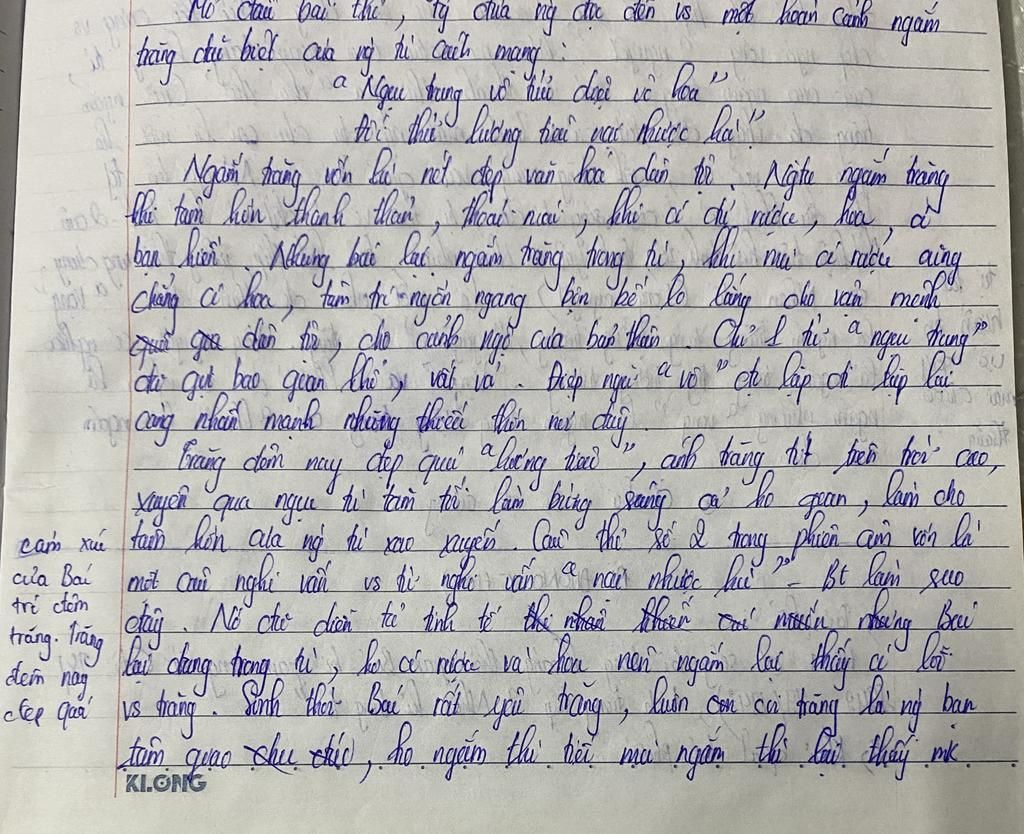 Mở đầu bài thơ, tg đưa ng đọc đến vs một hoàn cảnh ngắm
trăng đặc biệt của ng tù cách mạng:
"Ngục trung vô tửu diệc vô hoa"
Đối thử lương tiêu nại nhược hà?"
Ngắm trăng vốn là nét đẹp văn hoá dân tộc. Ngta ngắm trăng
khi tâm hồn thanh thản, thoải mái, khi có đủ rượu, hoa, có
bạn hiền. Nhưng bác lại ngắm trăng trong tù, khi mà có rượu cũng
chẳng có hoa, tâm trí ngổn ngang bộn bề lo lắng cho vận mệnh
dân tộc, cho cảnh ngộ của bản thân. Chỉ 1 từ "ngục trung"
đã gợi bao gian khổ, vất vả. Điệp ngữ "vô" đc lặp đi lặp lại
càng nhấn mạnh những thiếu thốn nơi đây.
Trăng đêm nay đẹp quá "lương tiêu", ánh trăng từ trên trời cao,
xuyên qua ngục tù tăm tối làm bừng sáng cả ko gian, làm cho
tâm hồn của ng tù xao xuyến. Câu thơ số 2 trong phiên âm vốn là
một câu nghi vấn vs từ nghi vấn "nại nhược hà" - Bt làm sao
đây. Nó đã diễn tả tinh tế nhưng Bác
lại đang trong tù, ko có rượu và hoa nên ngắm lại thấy có lỗi
vs trăng. Sinh thời Bác rất yêu trăng, luôn coi trăng là ng bạn
tâm giao, ko ngắm thì tiếc mà ngắm thì lại thấy mk
cảm xúc
của Bác
trc đêm
trăng. Trăng
đêm nay
đẹp quá
KLONG